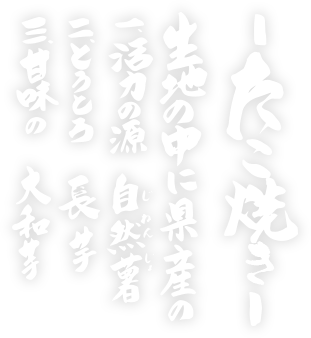 ーたこ焼きー
生地の中に県産の
一、活力の源 自然薯
じねんじょ
二、とうしろ 長芋
三、甘味の 大和芋